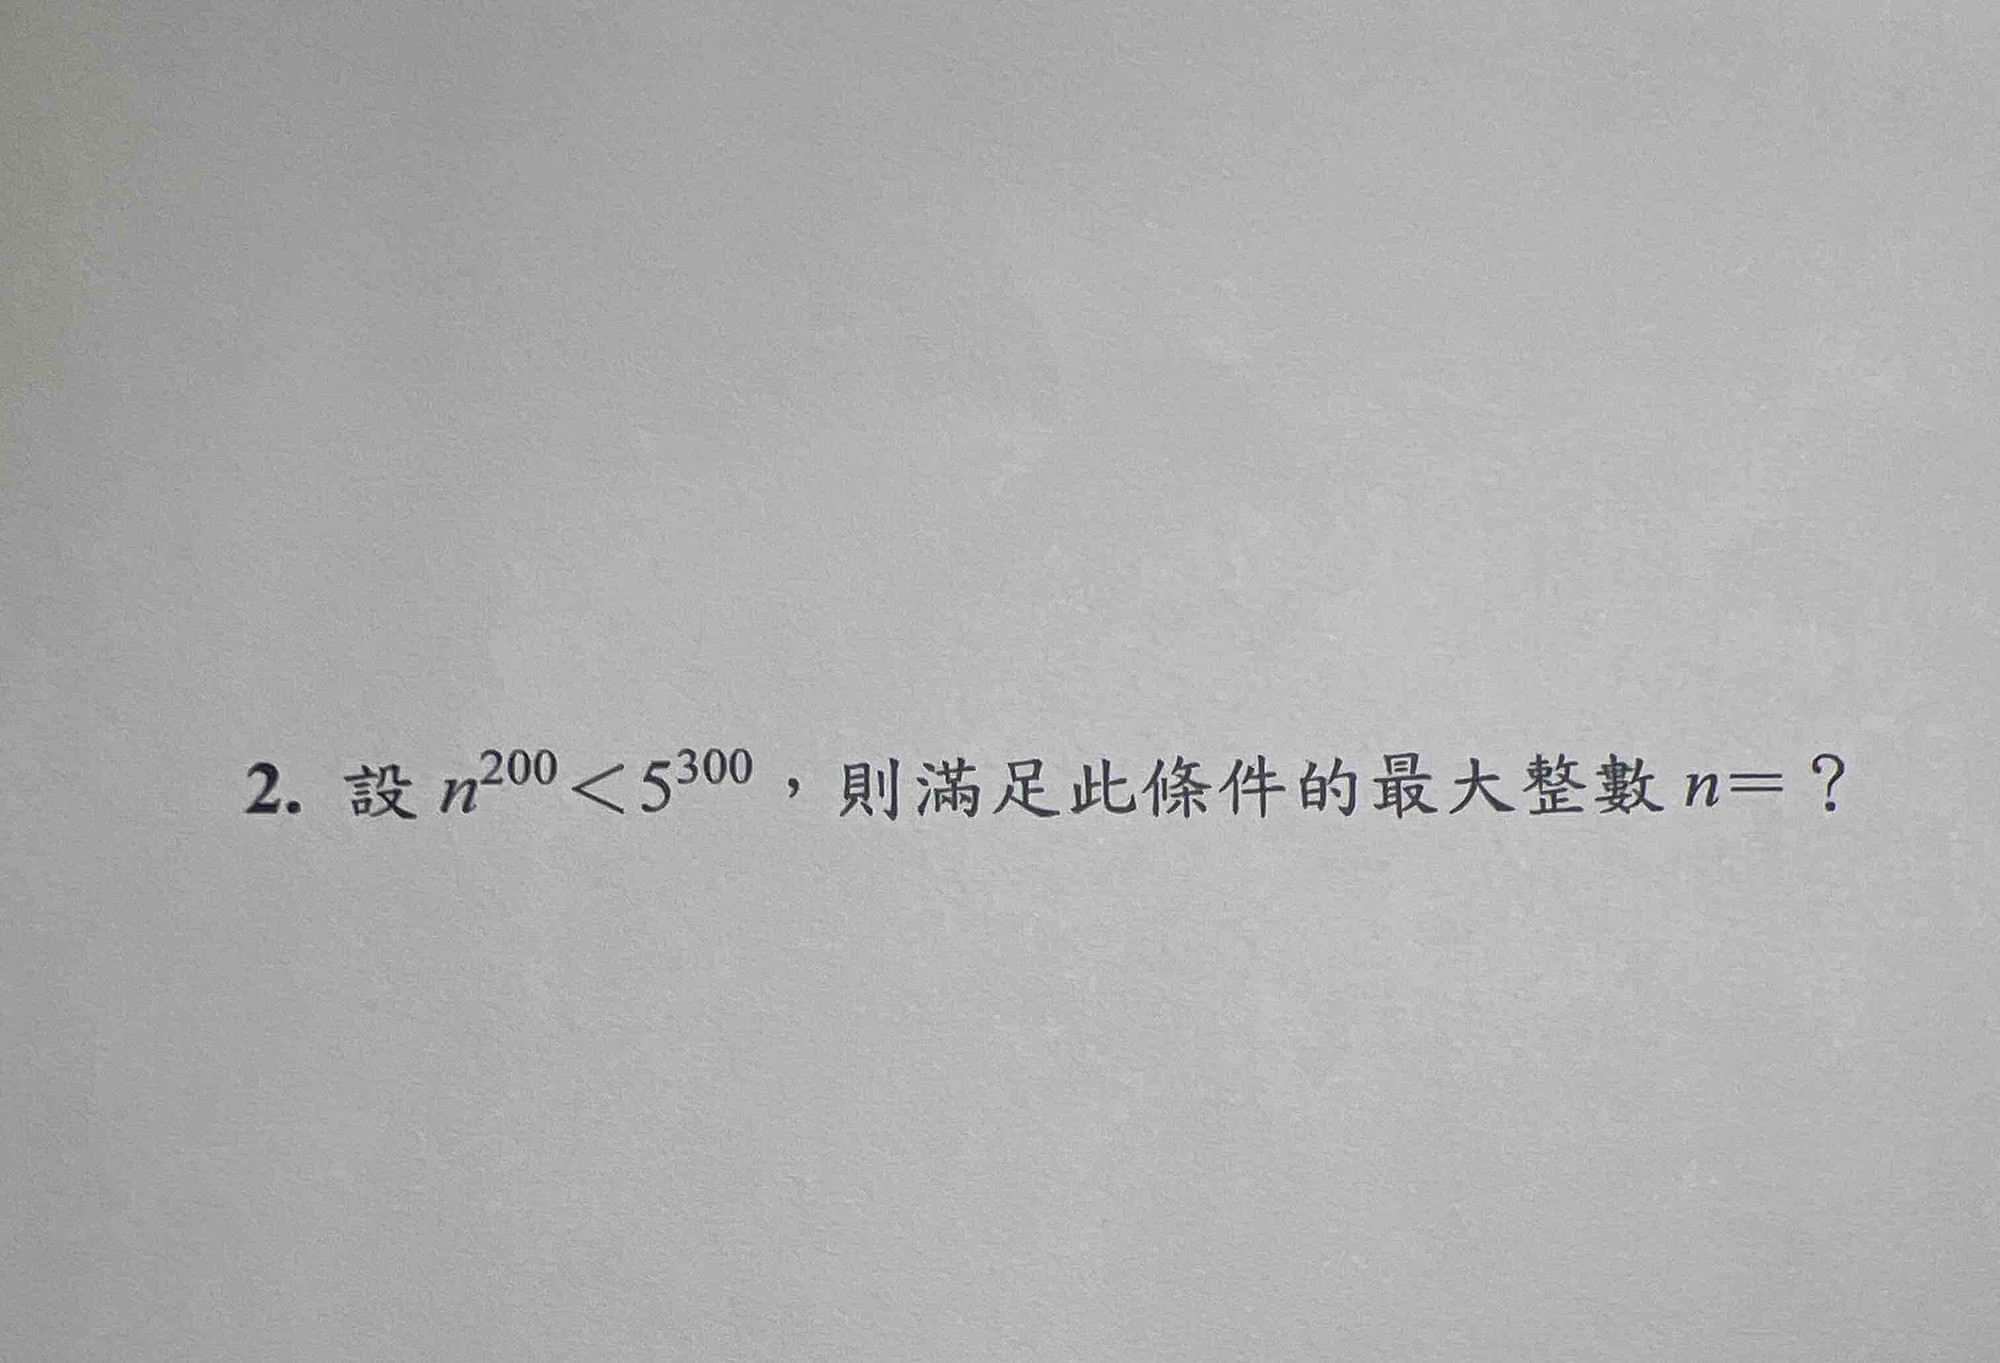 2. 設 n²⁰⁰＜5³⁰⁰，則滿足此條件的最大整數 n=？